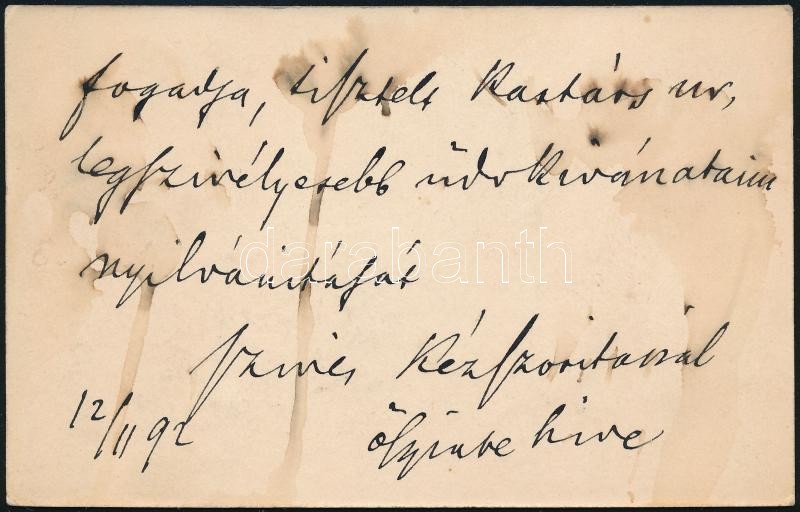 fogadja, tisztelt Kartárs ur,
legszivélyesebb üdvkivánataim
nyilvánitását
szives kézszoritással
12/II 92 őszinte hive
darabanth